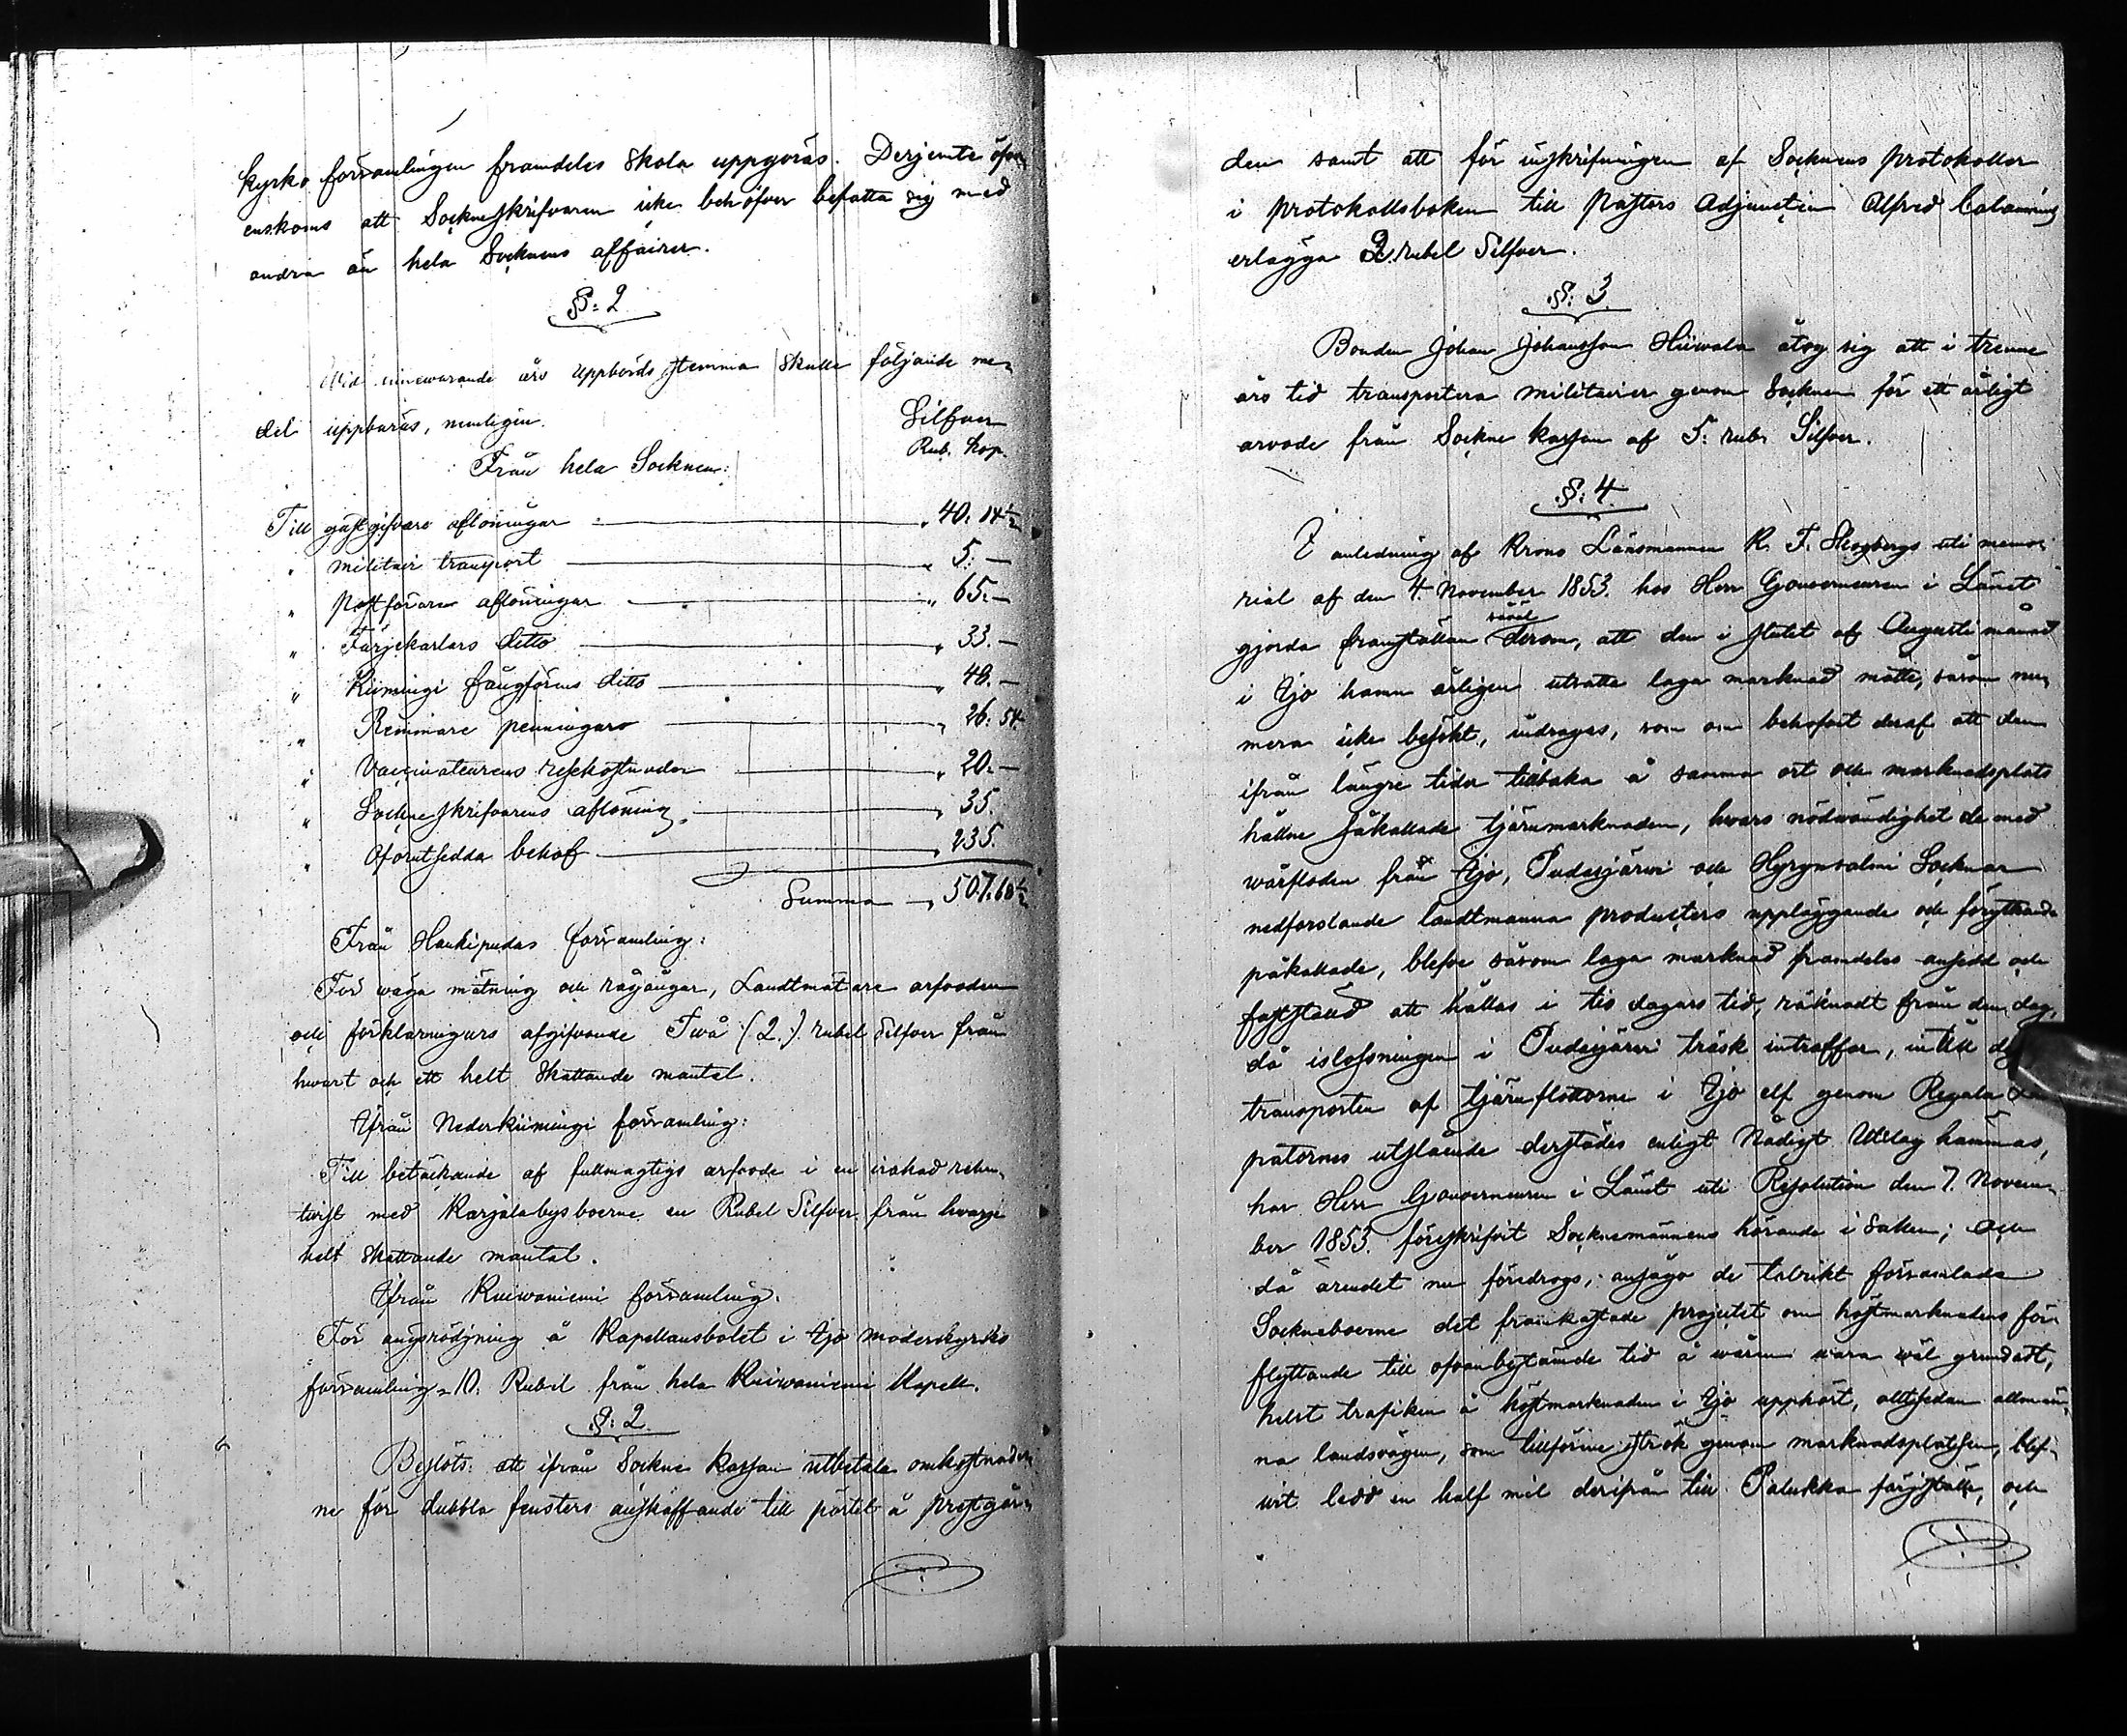 kyrko församlingen framdeles skola uppgöras. Derjemte öfver
enskoms att Sockneskrifvaren icke behöfver befatta sig med
andra än hela Socknens affairer.
§: 2
Wid innewarande års Uppbörds stemma skulle följande me-
del uppbäras, nemligen.
Silfver
Från hela Socknen:
Rub. Kop.
Till gästgifvare aflöningar " 40. 14½
" militair transport " 5. —
" postförare aflöningar " 65. —
" Färjekarlars ditto " 33. —
" Kiimingi fångförens ditto " 48. —
" Remmare penningars " 26. 54
" Vaccinateurens resekostnader " 20. —
" Sockneskrifvarens aflöning " 35.
" Oförutsedda behof " 235.
Summa " 507. 68½
Från Haukipudas församling:
För väga mätning och rågångar, Landtmätare arfvoden
och förklaringars afgifvande Twå (2.) rubel Silfver från
hwart och ett helt skattande mantal.
Ifrån Nederkiimingi församling:
Till betäckande af fullmägtigs arfvode i en
twist med Karjalabysboerne en Rubel Silfver från hwarje
helt skattande mantal.
Ifrån Kuiwaniemi församling.
För ängsrödjning å Kapellansbolet i Ijo moderkyrko
församling 10. Rubel från hela Kuiwaniemi Kapell.
§: 2.
Beslöts att ifrån Sockne kassan utbetala omkostnader-
ne för dubbla fensters anskaffande till pörtet å prestgår-
den samt att för inskrifningen af Socknens protokoller
i protokollsboken till Pastors Adjuncten Alfred Calamnius
erlägga 2 rubel Silfver.
§: 3.
Bonden Johan Johansson Hiivala åtog sig att i trenne
års tid transportera militairer genom Socknen för ett årligt
arvode från Sockne kassan af 5: rub. Silfver.
§: 4.
I anledning af Krono Länsmannen K. F. Skogbergs uti memo-
rial af den 4. November 1853. hos Herr Gouverneuren i Länet
gjorda framställan såväl derom, att den i slutet af Augusti månad
i Ijo hamn årligen utsatte laga marknad måtte, såsom nu-
mera icke besökt, indragas, som om behofvet deraf att den
ifrån längre tider tillbaka å samma ort och marknadsplats
hållne såkallade tjärumarknaden, hvars nödwändighet de med
wårfloden från Ijo, Pudasjärvi och Hyrynsalmi Socknar
nedforslande landtmanna producters uppläggande och förytttrande
påkallade, blefve såsom laga marknad framdeles ansedd och
fastställd att hållas i tio dagars tid, räknadt från den dag,
då islossningen i Pudasjärvi träsk inträffar, intill
transporten af tjäruflottorne i Ijo elf genom Regala
patornes utslående derstädes enligt Nådigt Utslag hämmas,
har Herr Gouverneuren i Länet uti Resolution den 7. Novem-
ber 1853. föreskrifvit Socknemännens hörande i saken; och
då ärendet nu föredrogs, ansågo de talrikt församlade
Sockneboerne det framkastade projectet om höstmarknadens för-
flyttande till ofvanbestämde tid å wåren wara wäl grundadt,
helst trafiken å höstmarknaden i Ijo upphört, alltsedan allmän-
na landsvägen, som tillförene strök genom marknadsplatsen, blif-
vit ledd en half mil derifrån till Palukka färjställe, och